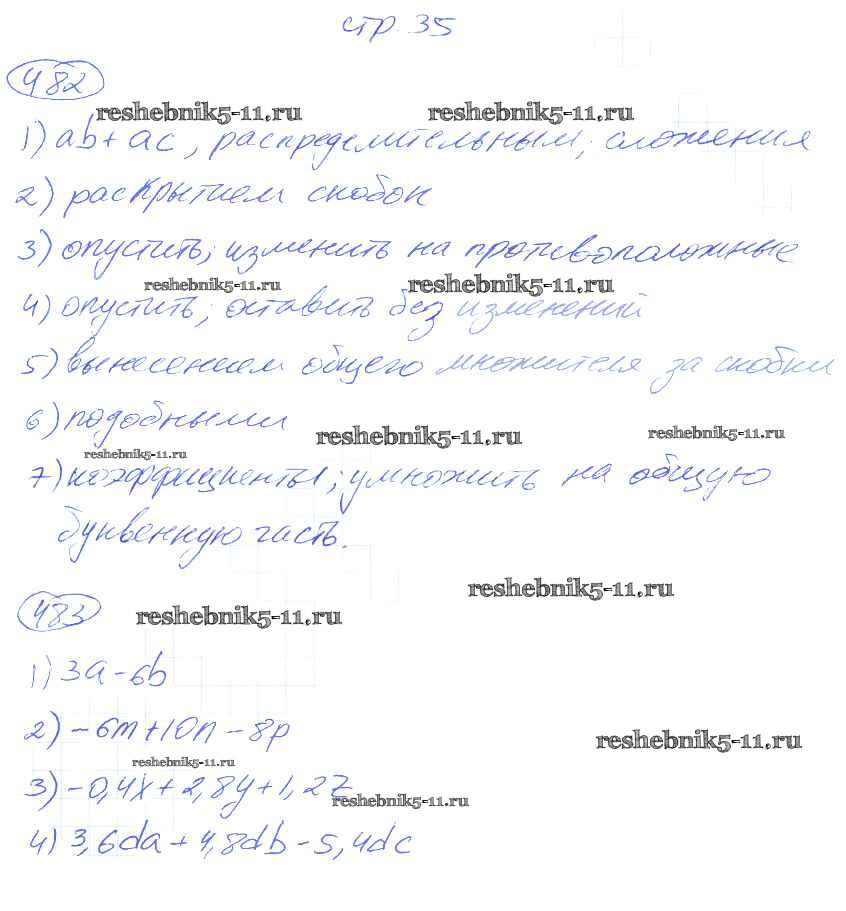 стр. 35
482
reshebnik5-11.ru reshebnik5-11.ru
1) ab + ac, распределительным; сложения
2) раскрытием скобок
3) опустить; изменить на противоположные
reshebnik5-11.ru reshebnik5-11.ru
4) опустить; оставить без изменений
5) вынесением общего множителя за скобки
6) подобными
reshebnik5-11.ru reshebnik5-11.ru
reshebnik5-11.ru
7) коэффициенты; умножить на общую
буквенную часть.
reshebnik5-11.ru
483
reshebnik5-11.ru
1) 3a - 6b
2) -6m + 10n - 8p
reshebnik5-11.ru
reshebnik5-11.ru
3) -0,4x + 2,8y + 1,2z
reshebnik5-11.ru
4) 3,6da + 4,8db - 5,4dc